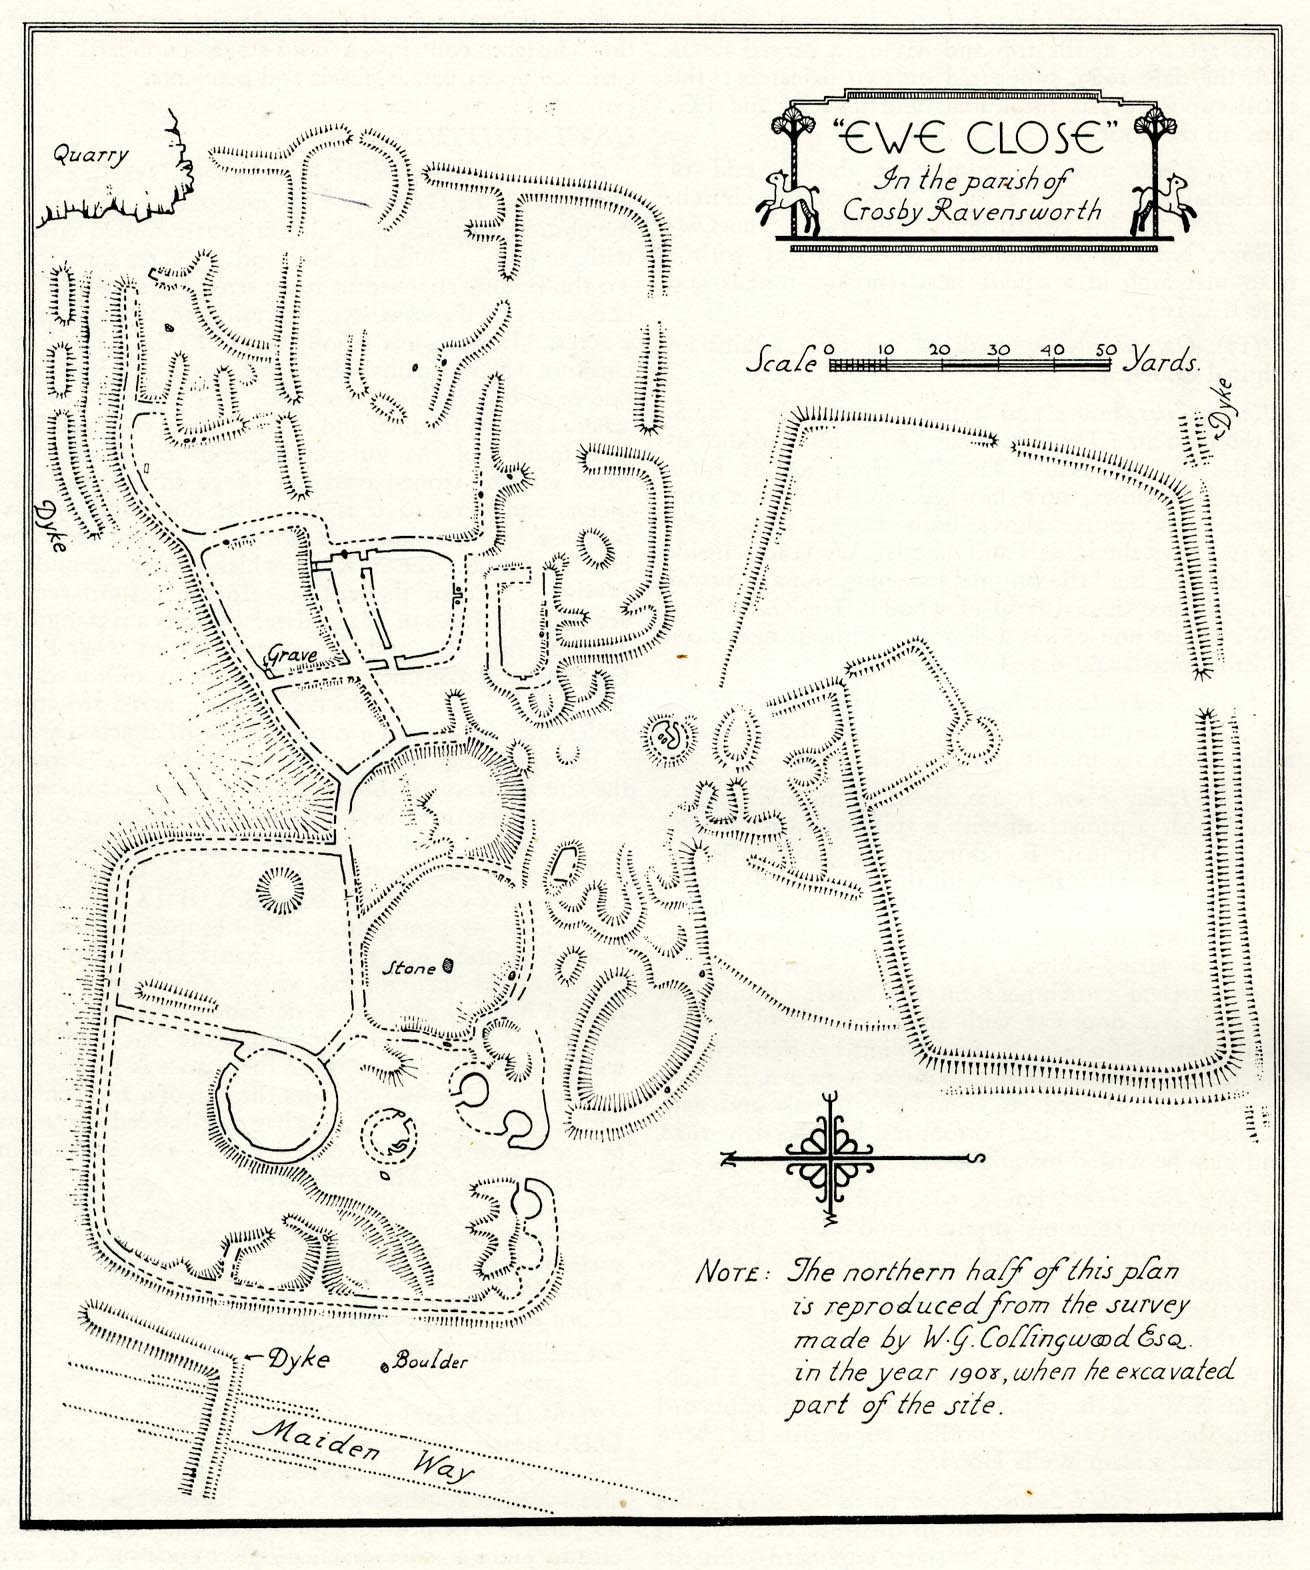 Quarry
"EWE CLOSE"
In the parish of
Crosby Ravensworth
Scale 0 10 20 30 40 50 Yards.
Dyke
Dyke
Grave
Stone
E
N S
W
NOTE: The northern half of this plan
is reproduced from the survey
made by W.G. Collingwood Esq.
in the year 1908, when he excavated
part of the site.
Dyke
Boulder
Maiden Way